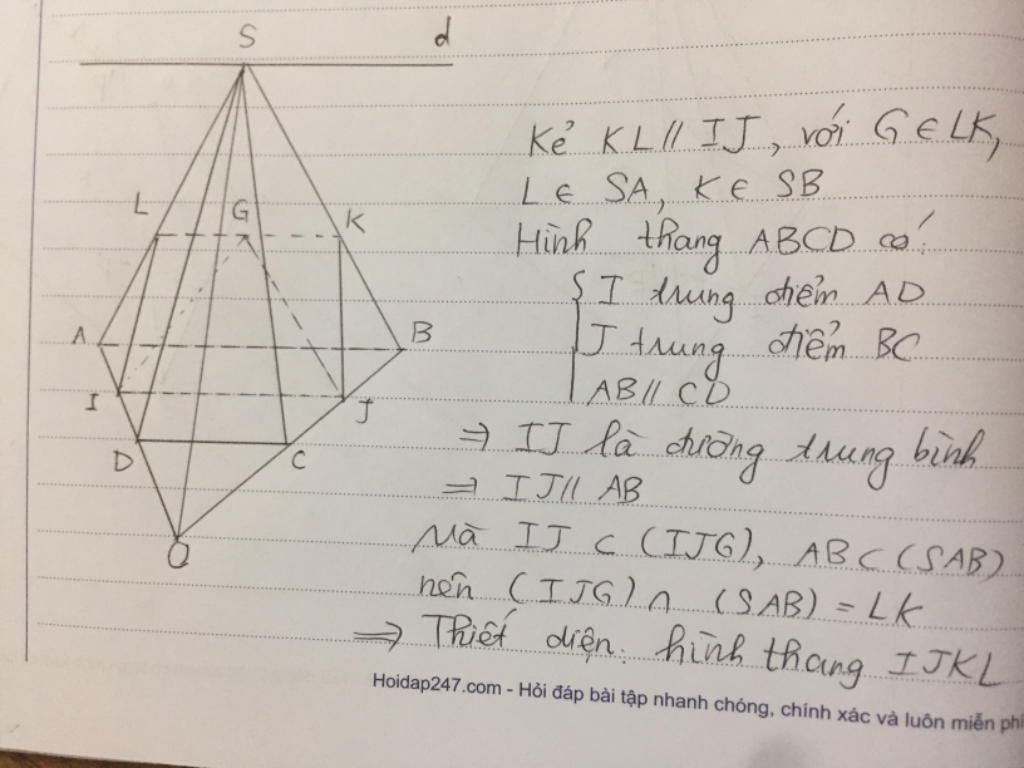 S
d
L
G
K
A
B
I
J
D
C
O
Kẻ KL // IJ, với G ∈ LK,
L ∈ SA, K ∈ SB
Hình thang ABCD có:
{ I trung điểm AD
J trung điểm BC
AB // CD
⇒ IJ là đường trung bình
⇒ IJ // AB
Mà IJ ⊂ (IJG), AB ⊂ (SAB)
nên (IJG) ∩ (SAB) = LK
⇒ Thiết diện: hình thang IJKL
Hoidap247.com - Hỏi đáp bài tập nhanh chóng, chính xác và luôn miễn phí